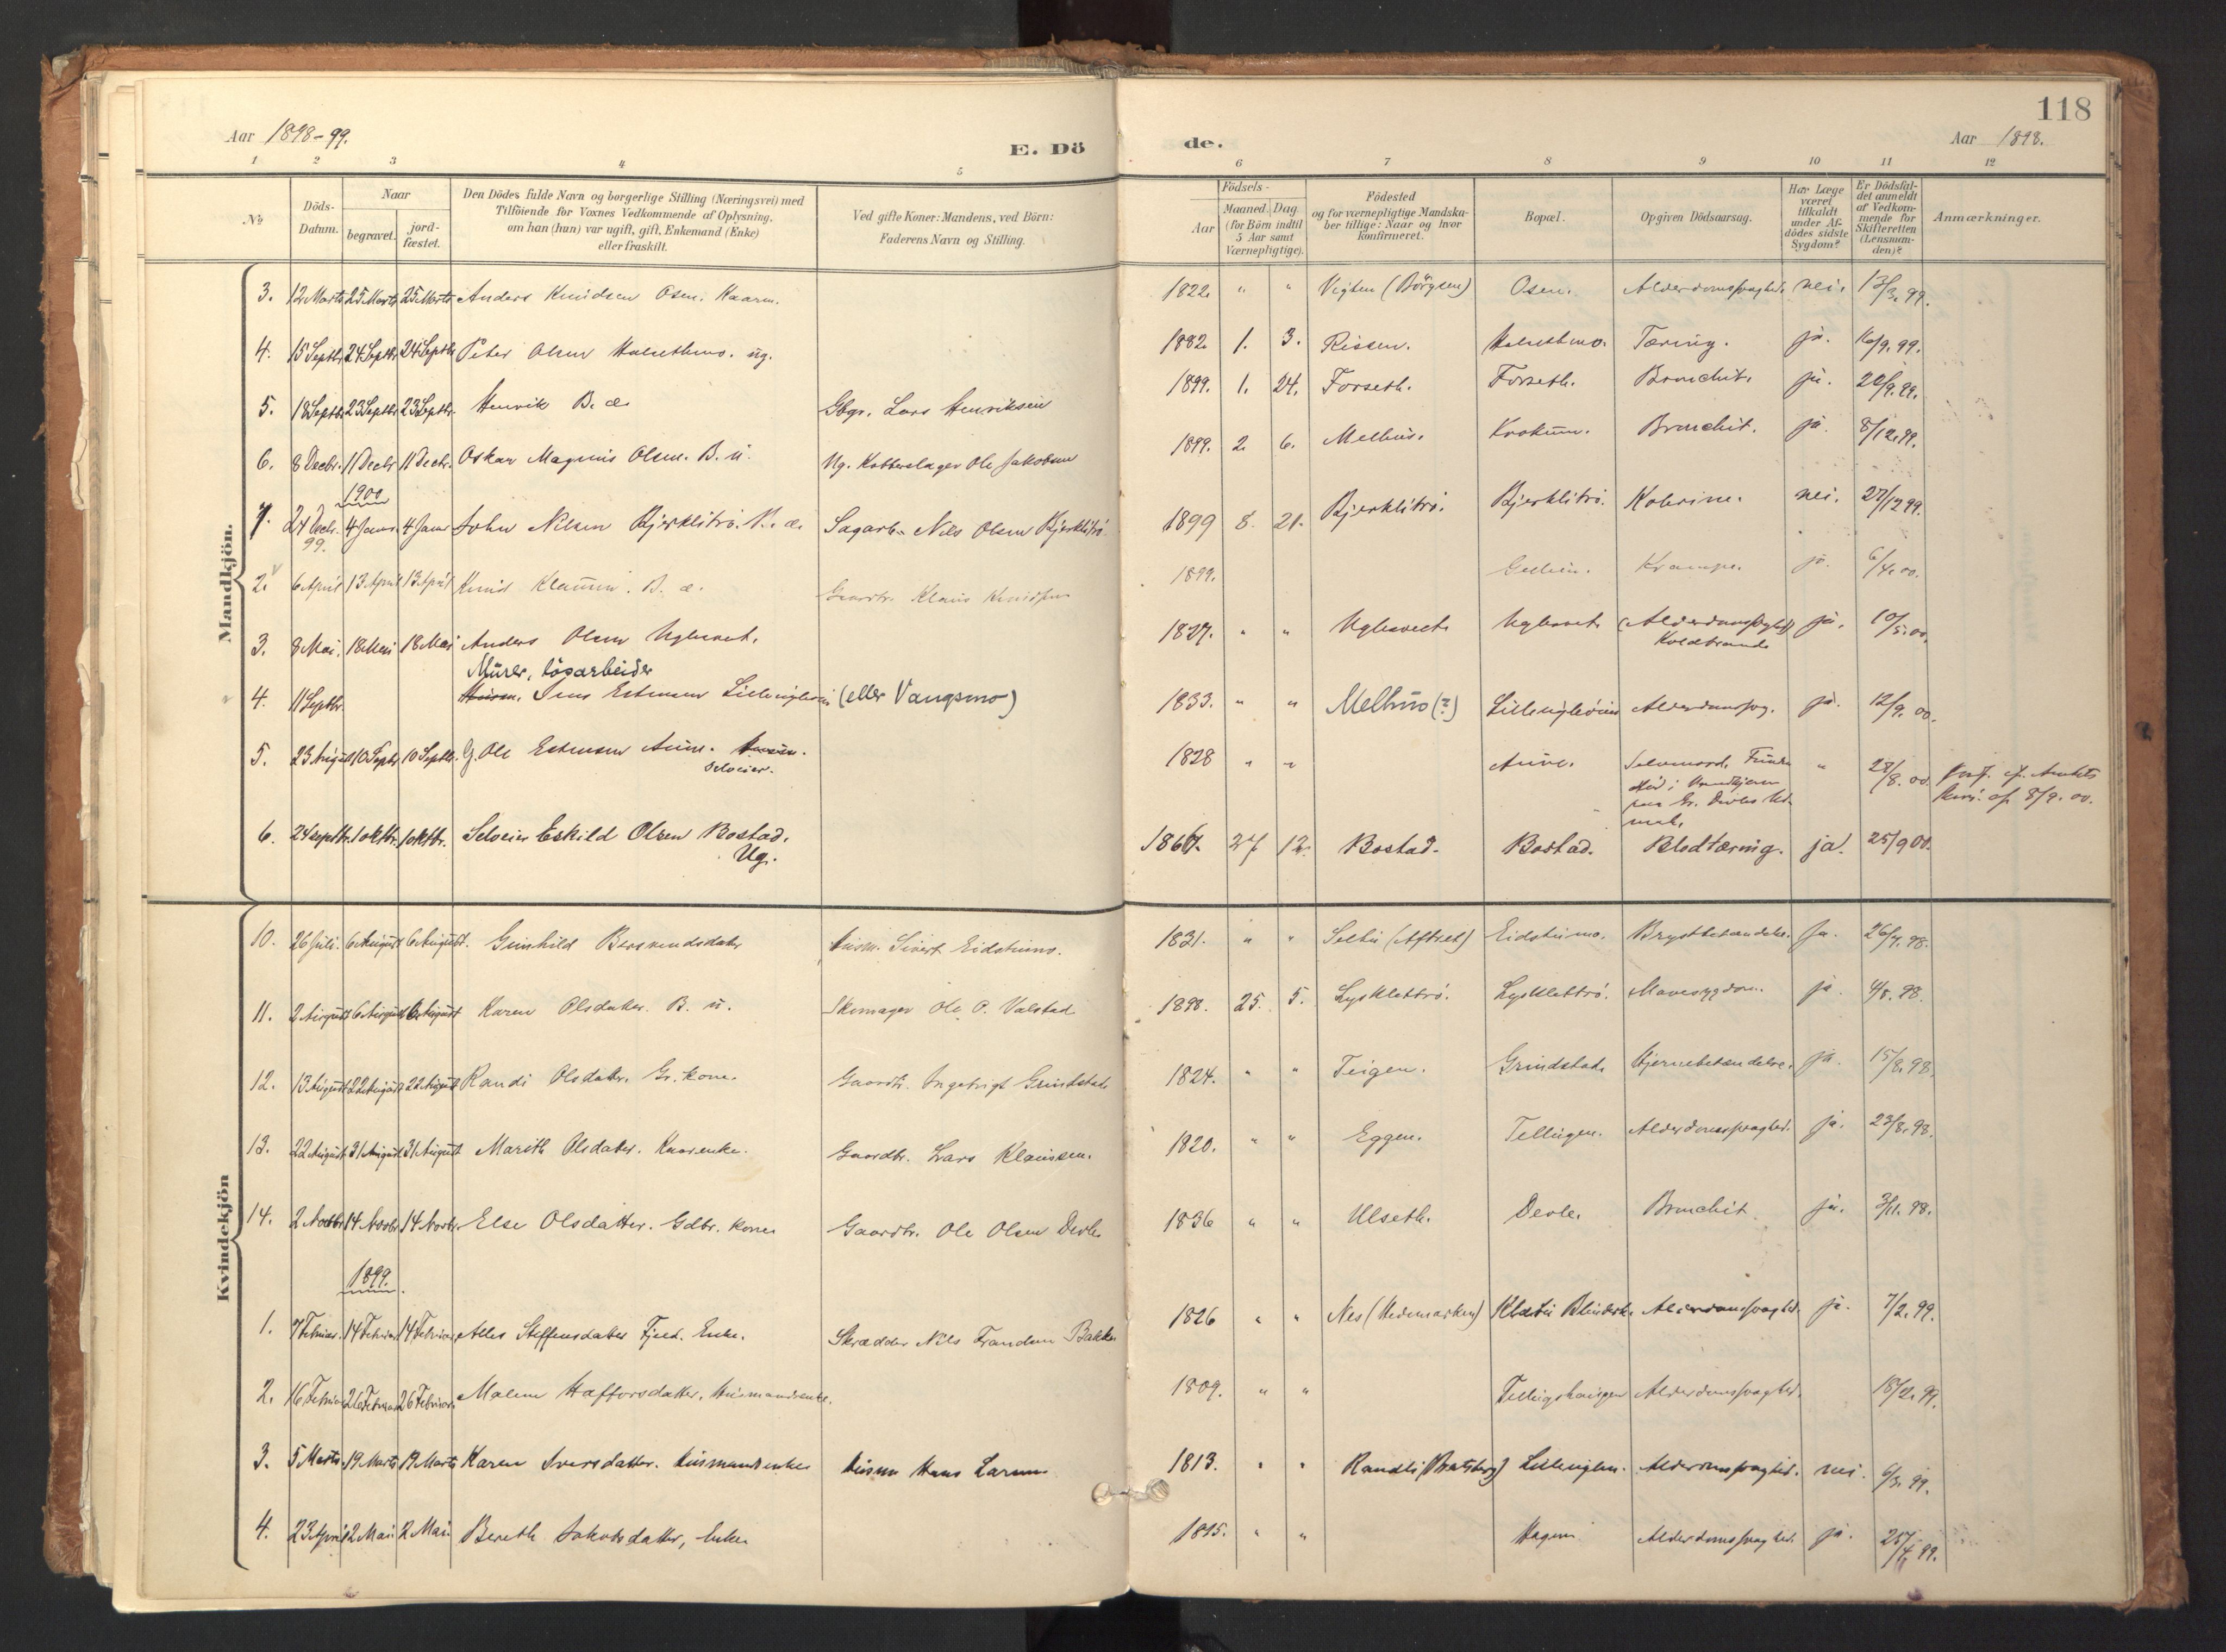 Aar 1898-99.
E. Dö
de.
118
Aar 1898.
1 2 3 4 5 6 7 8 9 10 11 12
№
Döds-
Datum.
Naar
begravet.
jord-
fæstet.
Den Dödes fulde Navn og borgerlige Stilling (Næringsvei) med
Tilföiende for Voxnes Vedkommende af Oplysning,
om han (hun) var ugift, gift, Enkemand (Enke)
eller fraskilt.
Ved gifte Koner: Mandens, ved Börn:
Faderens Navn og Stilling.
Födsels-
Aar
Maaned. Dag
(for Börn indtil
5 Aar samt
Værnepligtige).
Födested
og for værnepligtige Mandska-
ber tillige: Naar og hvor
konfirmeret.
Bopæl.
Opgiven Dödsaarsag.
Har Læge
været
tilkaldt
under Af-
dödes sidste
Sygdom?
Er Dödsfal-
det anmeldt
af Vedkom-
mende for
Skifteretten
(Lensman-
den)?
Anmærkninger.
Mandkjön.
3. 12 Marts 25 Marts 25 Marts Anders Knudsen Osen. Kaarm. 1822 " " Vigten (Börgsen) Osen. Alderdomssvaghed. nei. 13/3. 99.
4. 15 Septbr 24 Septbr 24 Septbr Peter Olsen Halsethmo. ug. 1882 1. 3. Rissen. Halsethmo. Tæring. ja. 16/9. 99.
5. 18 Septbr 23 Septbr 23 Septbr. Henrik B. æ. Gbgr. Lars Henriksen 1899. 1. 24. Forseth. Forseth. Bronchit. ja. 20/9. 99.
6. 8 Decbr. 11 Decbr 11 Decbr. Oskar Magnus Olsen. B. u. Ug. Kobberslager Ole Jakobsen 1899. 2 6. Melhus. Krokum. Bronchit. ja. 8/12. 99.
1900
7. 24 Decbr. 99. 4 Janr. 4 Janr John Nilsen Bjerklitrö. B. æ. Sagarb. Nils Olsen Bjerklitrö 1899 8. 21. Bjerklitrö. Bjerklitrö. Kolerine. nei. 27/12 99.
2. 6 April 13 April 13 April Knud Klausen. B. æ. Gaardbr. Klaus Knudsen 1899. Krampe. ja. 6/4. 00.
3. 8 Mai. 18 Mai 18 Mai Anders Olsen Uglevect. 1827. " " Uglevect Uglevect (Alderdomssvaghed) Koldbrand. ja. 10/5. 00.
Mürer, lösarbeider
4. 11 Septbr. Husm. Jens Estensen Lilleugleöien (eller Vangsmo) 1833. " " Melhus (?) Lilleugleöien Alderdomssvag. ja. 12/9. 00.
5. 23 August 10 Septbr 10 Septbr. G. Ole Estensen Aune. 1828 " " Aune. Selvmord. " 28/8. 00.
Selveier.
6. 24 septbr. 1 oktbr. 1 oktbr. Selveier Eskild Olsen Bostad. 1867. 27 12. Bostad. Bostad. Blodtæring. ja. 25/9 00.
Ug.
Kvindekjön
10. 26 Juli. 6 August 6 August. Gunhild Bersvendsdatter Husm. Sivert Eidstumo. 1831. " " Selbu (Aftret) Eidstumo. Brystbetændelse. Ja. 26/7. 98.
11. 2 August 6 August 6 August Karen Olsdatter. B. u. Skomager Ole P. Valstad 1898. 25. 5. Lysklettrö. Lysklettrö. Mavesygdom. ja. 4/8. 98.
12. 13 August 22 August 22 August Randi Olsdatter. Gr. kone. Gaardbr. Ingebrigt Grindstad. 1824. " " Teigen. Grindstad. Hjernebetændelse. ja. 15/8. 98.
13. 22 August 31 August 31 August Marith Olsdatter. Kaarenke. Gaardbr. Lars Klaussen. 1820. " " Eggen. Tellugen. Alderdomssvaghed. ja. 23/8. 98.
14. 2 Novbr 14 Novbr 14 Novbr. Else Olsdatter. Gdbr. kone Gaardbr. Ole Olsen Devle 1836 " " Ulseth. Devle. Bronchit. ja. 3/11. 98.
1899.
1. 7 Februar. 14 Februar 14 Februar Steffensdatter Fjeed. Enke. Skrædder Nils Frandsen Bakke 1826 " " Nes (Hedemarken) Alderdomssvaghed. ja. 7/2. 99.
2. 16 Februar 26 Februar 26 Februar. Malene Haftorsdatter. Husmandsenke. 1809. " " Tellugshaugen Alderdomssvaghed. 18/2. 99.
3. 5 Marts. 19 Marts 19 Marts Karen Iversdatter. Husmandsenke Husm Hans Larsen 1813. " " Randli (Bratsberg) Lilleuglen. Alderdomssvaghed. nei. 6/3. 99.
4. 23 April 2 Mai 2 Mai Bereth Jakobsdatter, Enke 1815. " " Hagen Alderdomssvaghed. ja. 25/4 99.